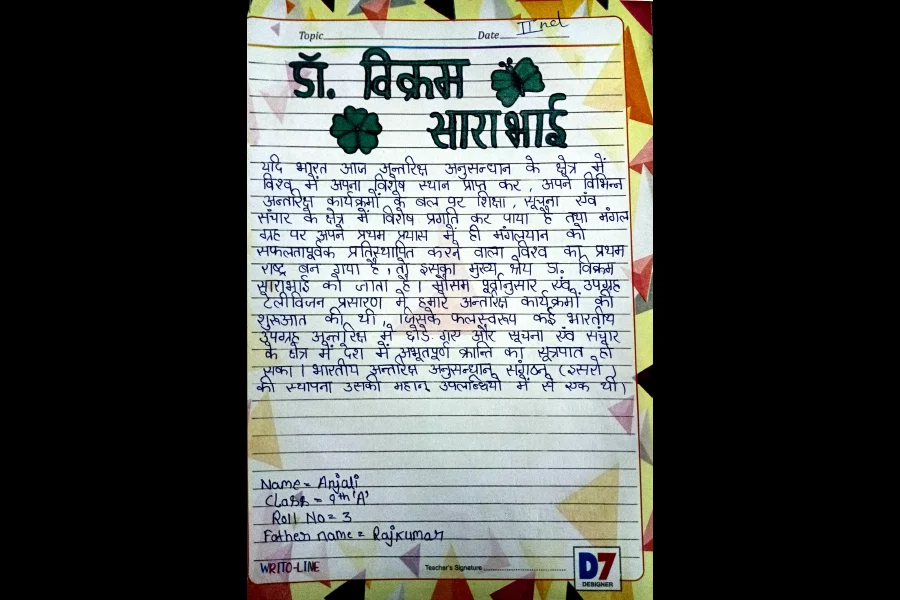 Topic
Date IInd
डॉ. विक्रम
साराभाई
यदि भारत आज अन्तरिक्ष अनुसन्धान के क्षेत्र में
विश्व में अपना विशेष स्थान प्राप्त कर, अपने विभिन्न
अन्तरिक्ष कार्यक्रमों के बल पर शिक्षा, सूचना एंव
संचार के क्षेत्र में विशेष प्रगति कर पाया है तथा मंगल
ग्रह पर अपने प्रथम प्रयास में ही मंगलयान को
सफलतापूर्वक प्रतिस्थापित करने वाला विश्व का प्रथम
राष्ट्र बन गया है, तो इसका मुख्य श्रेय डॉ. विक्रम
साराभाई को जाता है। मौसम पूर्वानुसार एंव उपग्रह
टेलीविजन प्रसारण में हमारे अन्तरिक्ष कार्यक्रमों की
शुरूआत की थी, जिसके फलस्वरूप कई भारतीय
उपग्रह अन्तरिक्ष में छोडे गए और सूचना एंव संचार
के क्षेत्र में देश में अभूतपूर्ण क्रान्ति का सूत्रपात हो
सका। भारतीय अन्तरिक्ष अनुसन्धान संगठन (इसरो)
की स्थापना उसकी महान् उपलब्धियो में से एक थी।
Name = Anjali
Class = 9th 'A'
Roll No = 3
Father name = Rajkumar
WRITO-LINE
Teacher's Signature
D7
DESIGNER